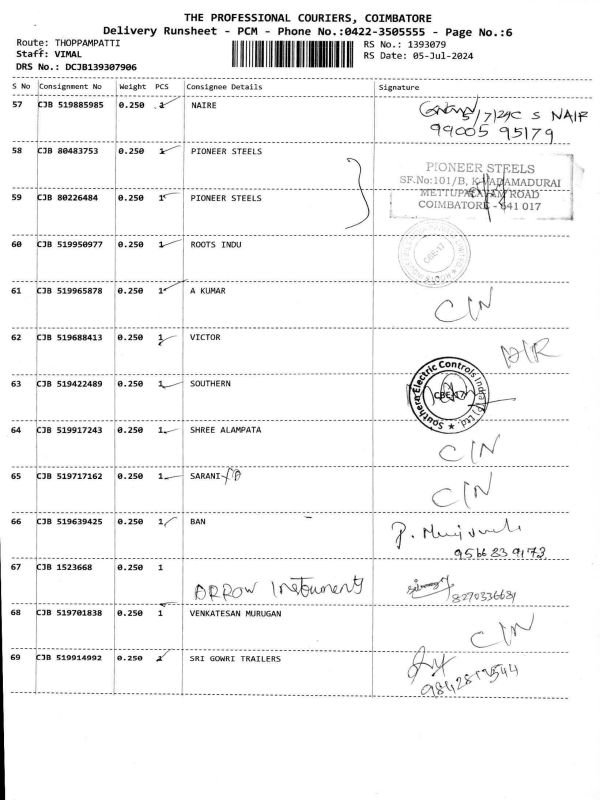 THE PROFESSIONAL COURIERS, COIMBATORE
Delivery Runsheet - PCM - Phone No.:0422-3505555 - Page No.:6
Route: THOPPAMPATTI
Staff: VIMAL
DRS No.: DCJB139307906
RS No.: 1393079
RS Date: 05-Jul-2024
S No Consignment No Weight PCS Consignee Details Signature
57 CJB 519885985 0.250 1 NAIRE
5/7/24 C S NAIR
99005 95179
58 CJB 80483753 0.250 1 PIONEER STEELS
PIONEER STEELS
SF.No:101/B, K.VADAMADURAI
METTUPALAYAM ROAD
COIMBATORE - 641 017
59 CJB 80226484 0.250 1 PIONEER STEELS
60 CJB 519950977 0.250 1 ROOTS INDU
CBE-17
61 CJB 519965878 0.250 1 A KUMAR
C/N
62 CJB 519688413 0.250 1 VICTOR
D/R
63 CJB 519422489 0.250 1 SOUTHERN
Southern Electric Controls India (P) Ltd.
CBE-17
64 CJB 519917243 0.250 1 SHREE ALAMPATA
C/N
65 CJB 519717162 0.250 1 SARANI
C/N
66 CJB 519639425 0.250 1 BAN
9566 839173
67 CJB 1523668 0.250 1
ARROW Instruments
8270336631
68 CJB 519701838 0.250 1 VENKATESAN MURUGAN
C/N
69 CJB 519914992 0.250 1 SRI GOWRI TRAILERS